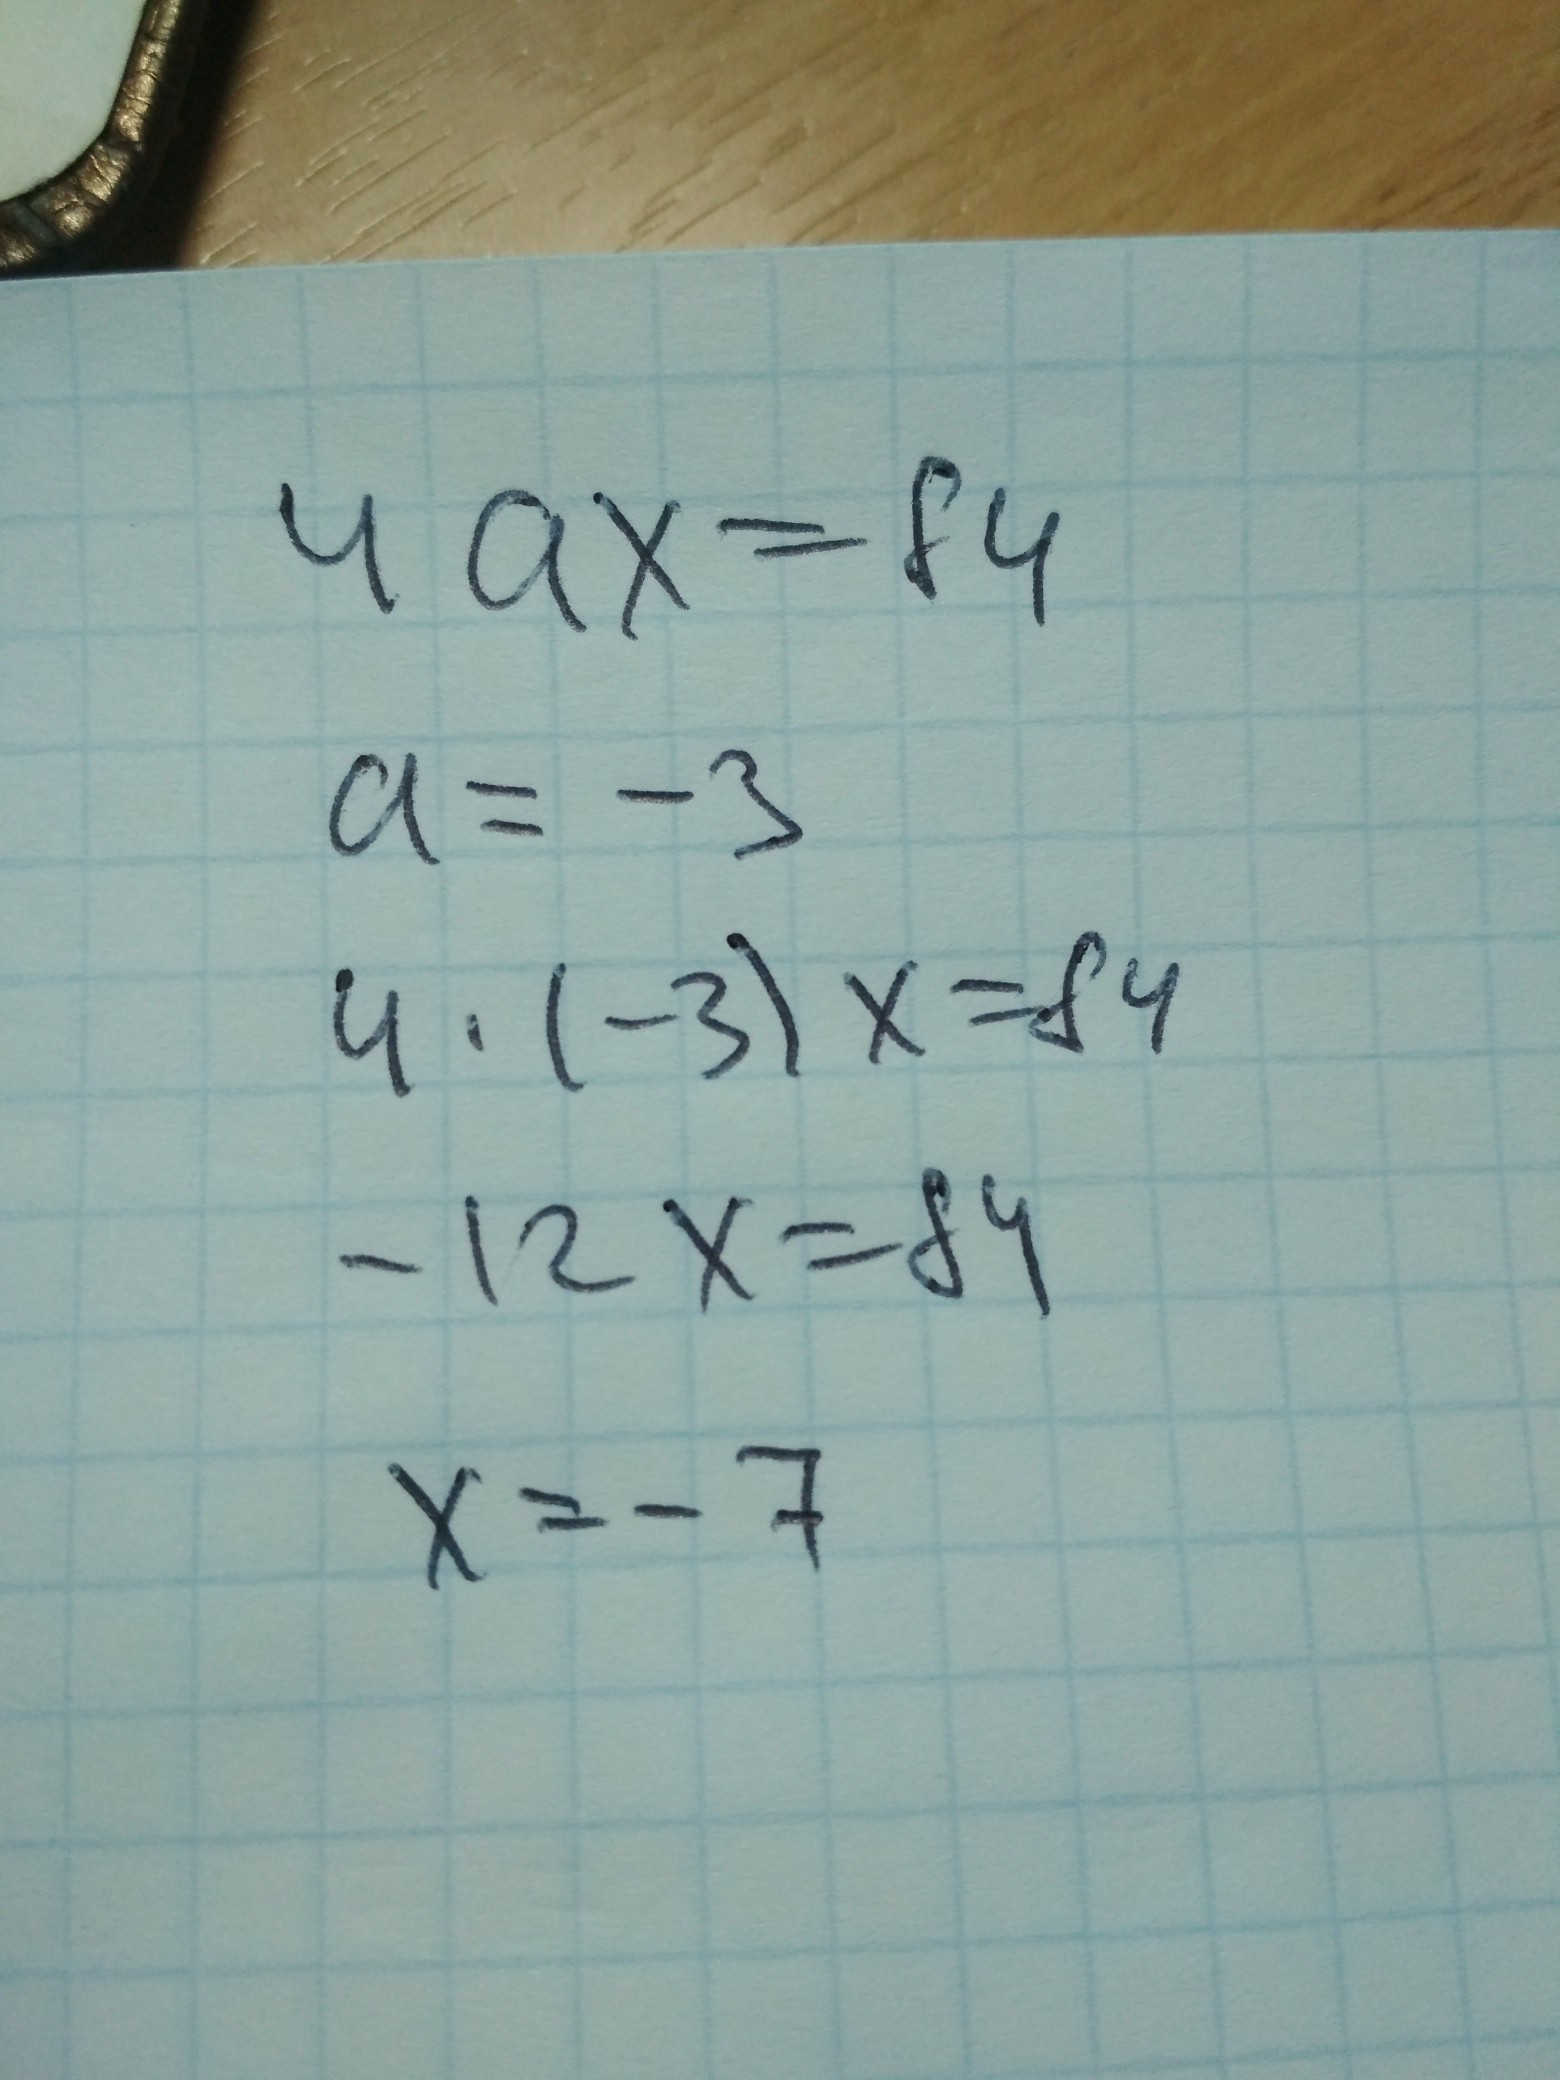 4ax=84
a=-3
4·(-3)x=84
-12x=84
x=-7